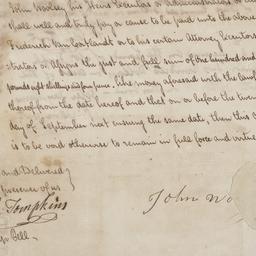 John Wooley his Heirs Executors or Administrators or
shall well and truly pay or cause to be paid unto the above
Frederick Van Cortlandt or to his certain Attorney Executors
strators or Assigns the just and full sum of One hundred and
pounds eight shillings and four pence, like Money aforesaid with the lawf
thereof from the date hereof and that on or before the twen
day of September next ensuing the same date, then this O
is to be void otherwise to remain in full force and virtue
and Delivered }
presence of us
Tompkins
Bell
John Wo